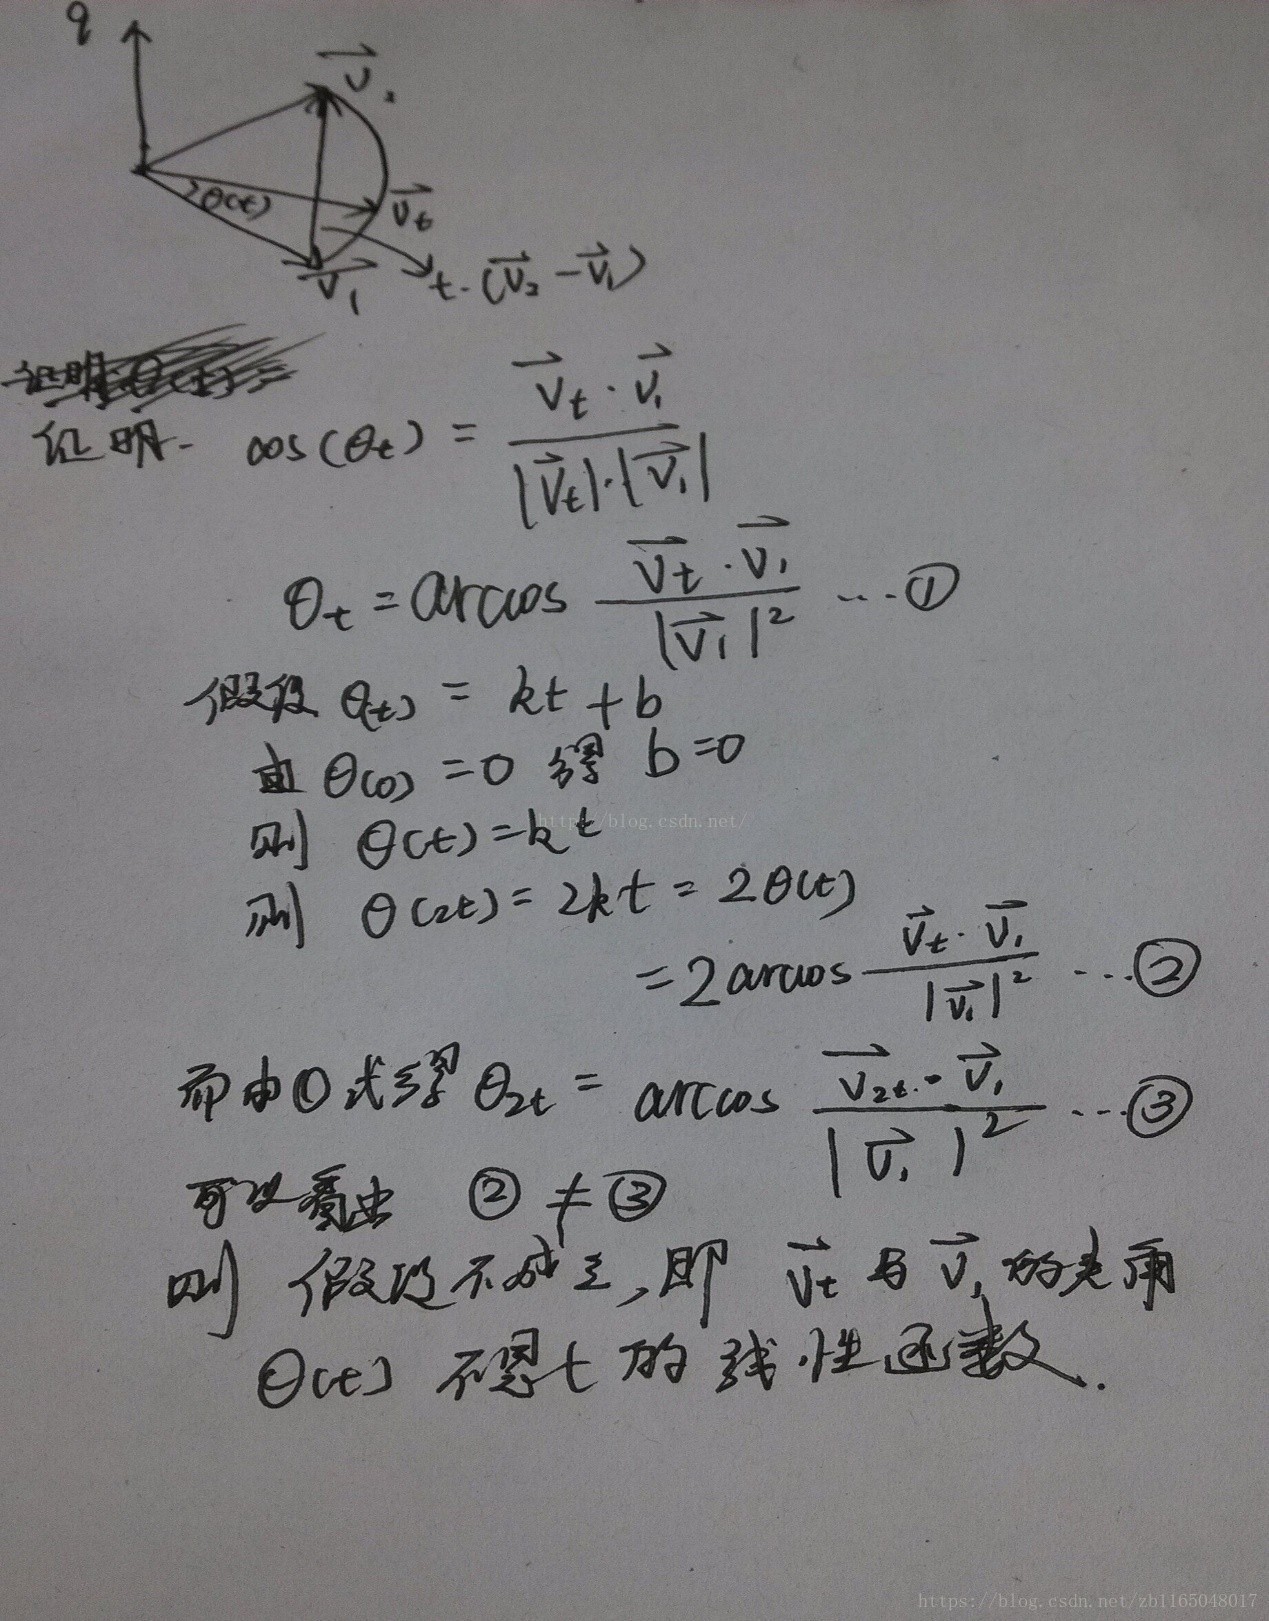 q
v⃗₂
θ(t)
v⃗t
v⃗₁
t·(v⃗₂ - v⃗₁)
证明 θ(t)=
证明. cos(θt) = v⃗t · v⃗₁ / |v⃗t|·|v⃗₁|
θt = arccos v⃗t · v⃗₁ / |v⃗₁|² ···①
假设 θ(t) = kt + b
由 θ(0) = 0 得 b = 0
则 θ(t) = kt
http://blog.csdn.net/
则 θ(2t) = 2kt = 2θ(t)
= 2arccos v⃗t · v⃗₁ / |v⃗₁|² ···②
而由①式得 θ2t = arccos v⃗2t · v⃗₁ / |v⃗₁|² ···③
可以看出 ② ≠ ③
则 假设不成立,即 v⃗t 与 v⃗₁ 的夹角
θ(t) 不是 t 的线性函数.
https://blog.csdn.net/zb1165048017